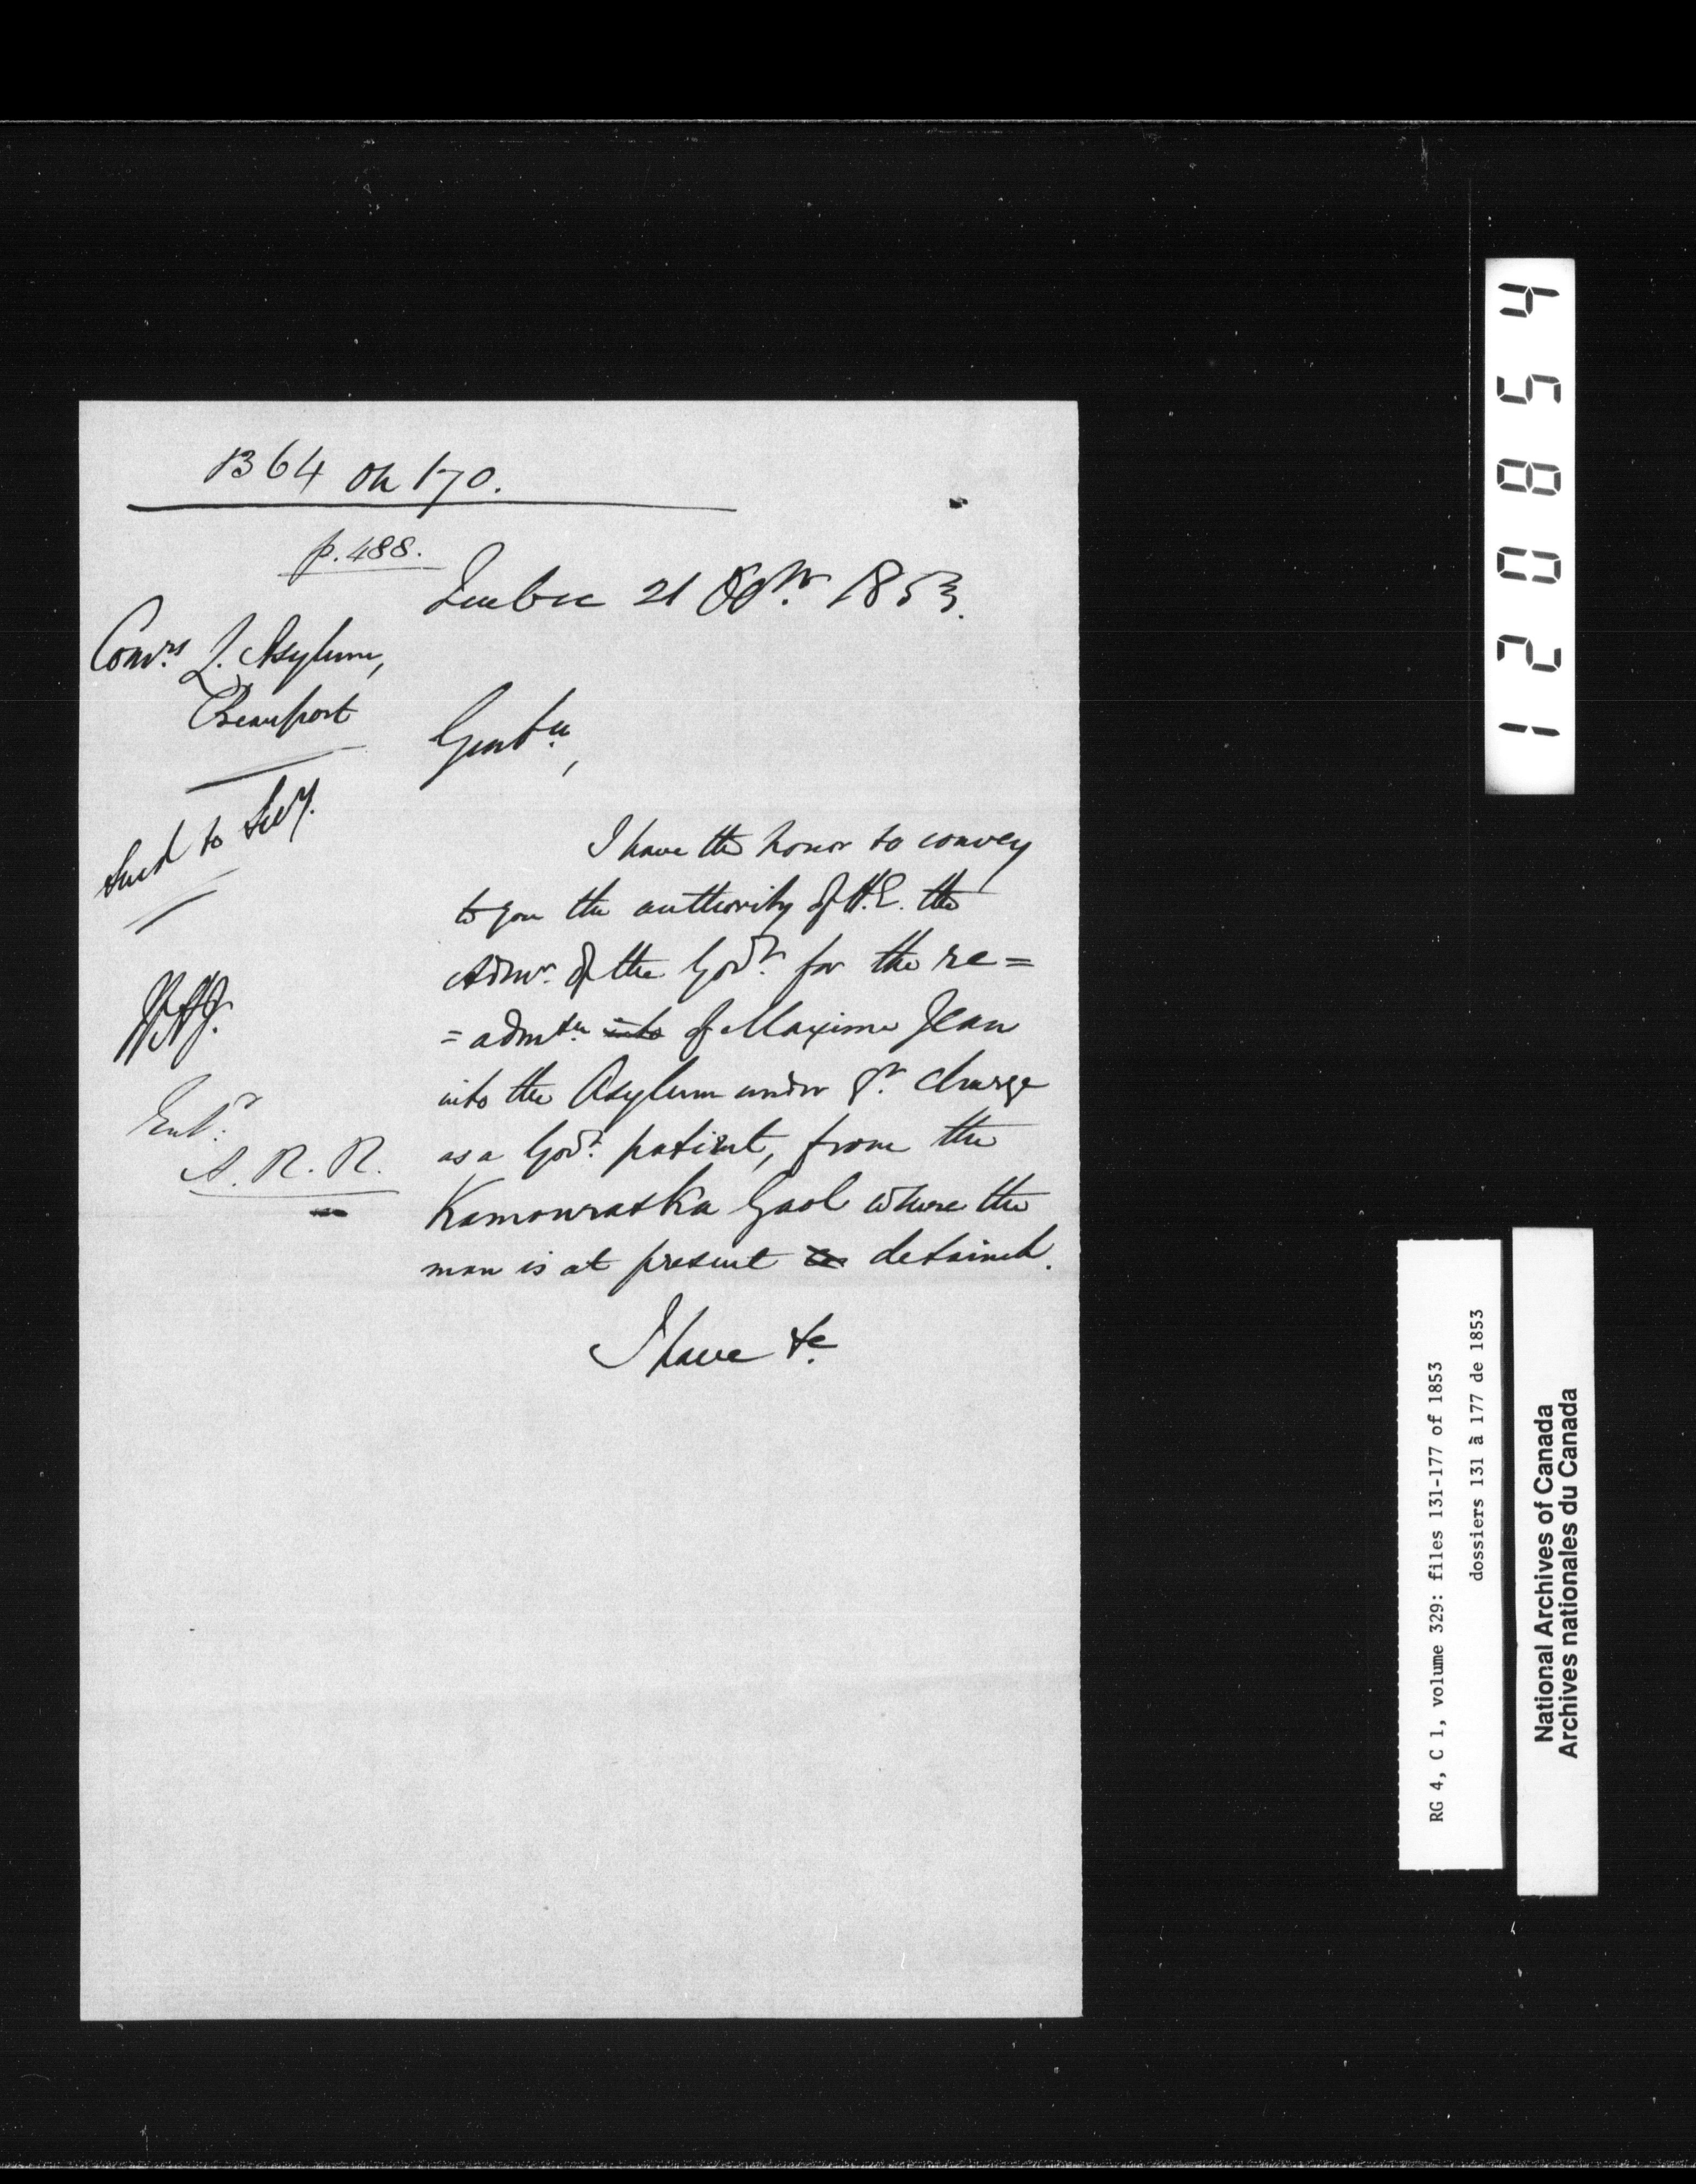 1364 on 170.
p. 488.
Quebec 21 Octr. 1853.
Comrs. L. Asylum,
Beauport
Gentn,
Send to Secy.
I have the honor to convey
to you the authority of H.E. the
Admr. of the Govt. for the re=
=admtn. into of Maxime Jean
into the Asylum under yr. charge
as a Govt. patient, from the
Kamouraska Gaol where the
man is at present detained.
I have &c
Entd.
A. R. R.
120854
RG 4, C 1, volume 329: files 131-177 of 1853
dossiers 131 à 177 de 1853
National Archives of Canada
Archives nationales du Canada